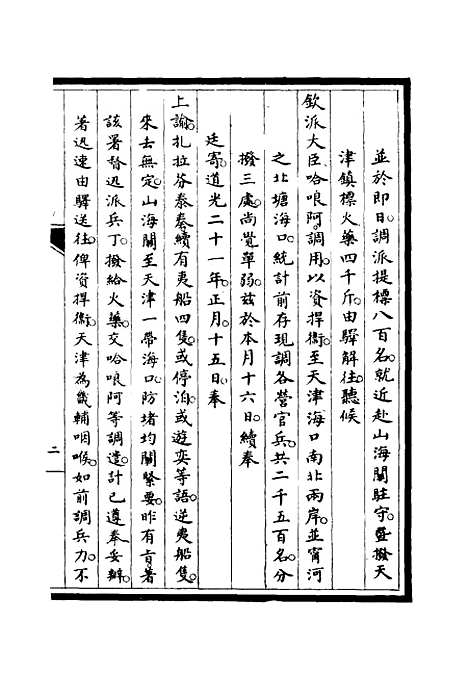 並於即日調派提標八百名就近赴山海關駐守並撥天
津鎮標火藥四千斤由驛解往聽候
欽派大臣哈哴阿調用以資捍衛至天津海口南北兩岸並甯河
之北塘海口統計前存現調各營官兵共二千五百名分
撥三處尚覺單弱茲於本月十六日續奉
廷寄道光二十一年正月十五日奉
上諭扎拉芬泰奏續有夷船四隻或停泊或遊奕等語逆夷船隻
來去無定山海關至天津一帶海口防堵均關緊要昨有旨著
該署督迅派兵丁撥給火藥交哈哴阿等調遣計已遵奉妥辦
著迅速由驛送往俾資捍衛天津為畿輔咽喉如前調兵力不
二